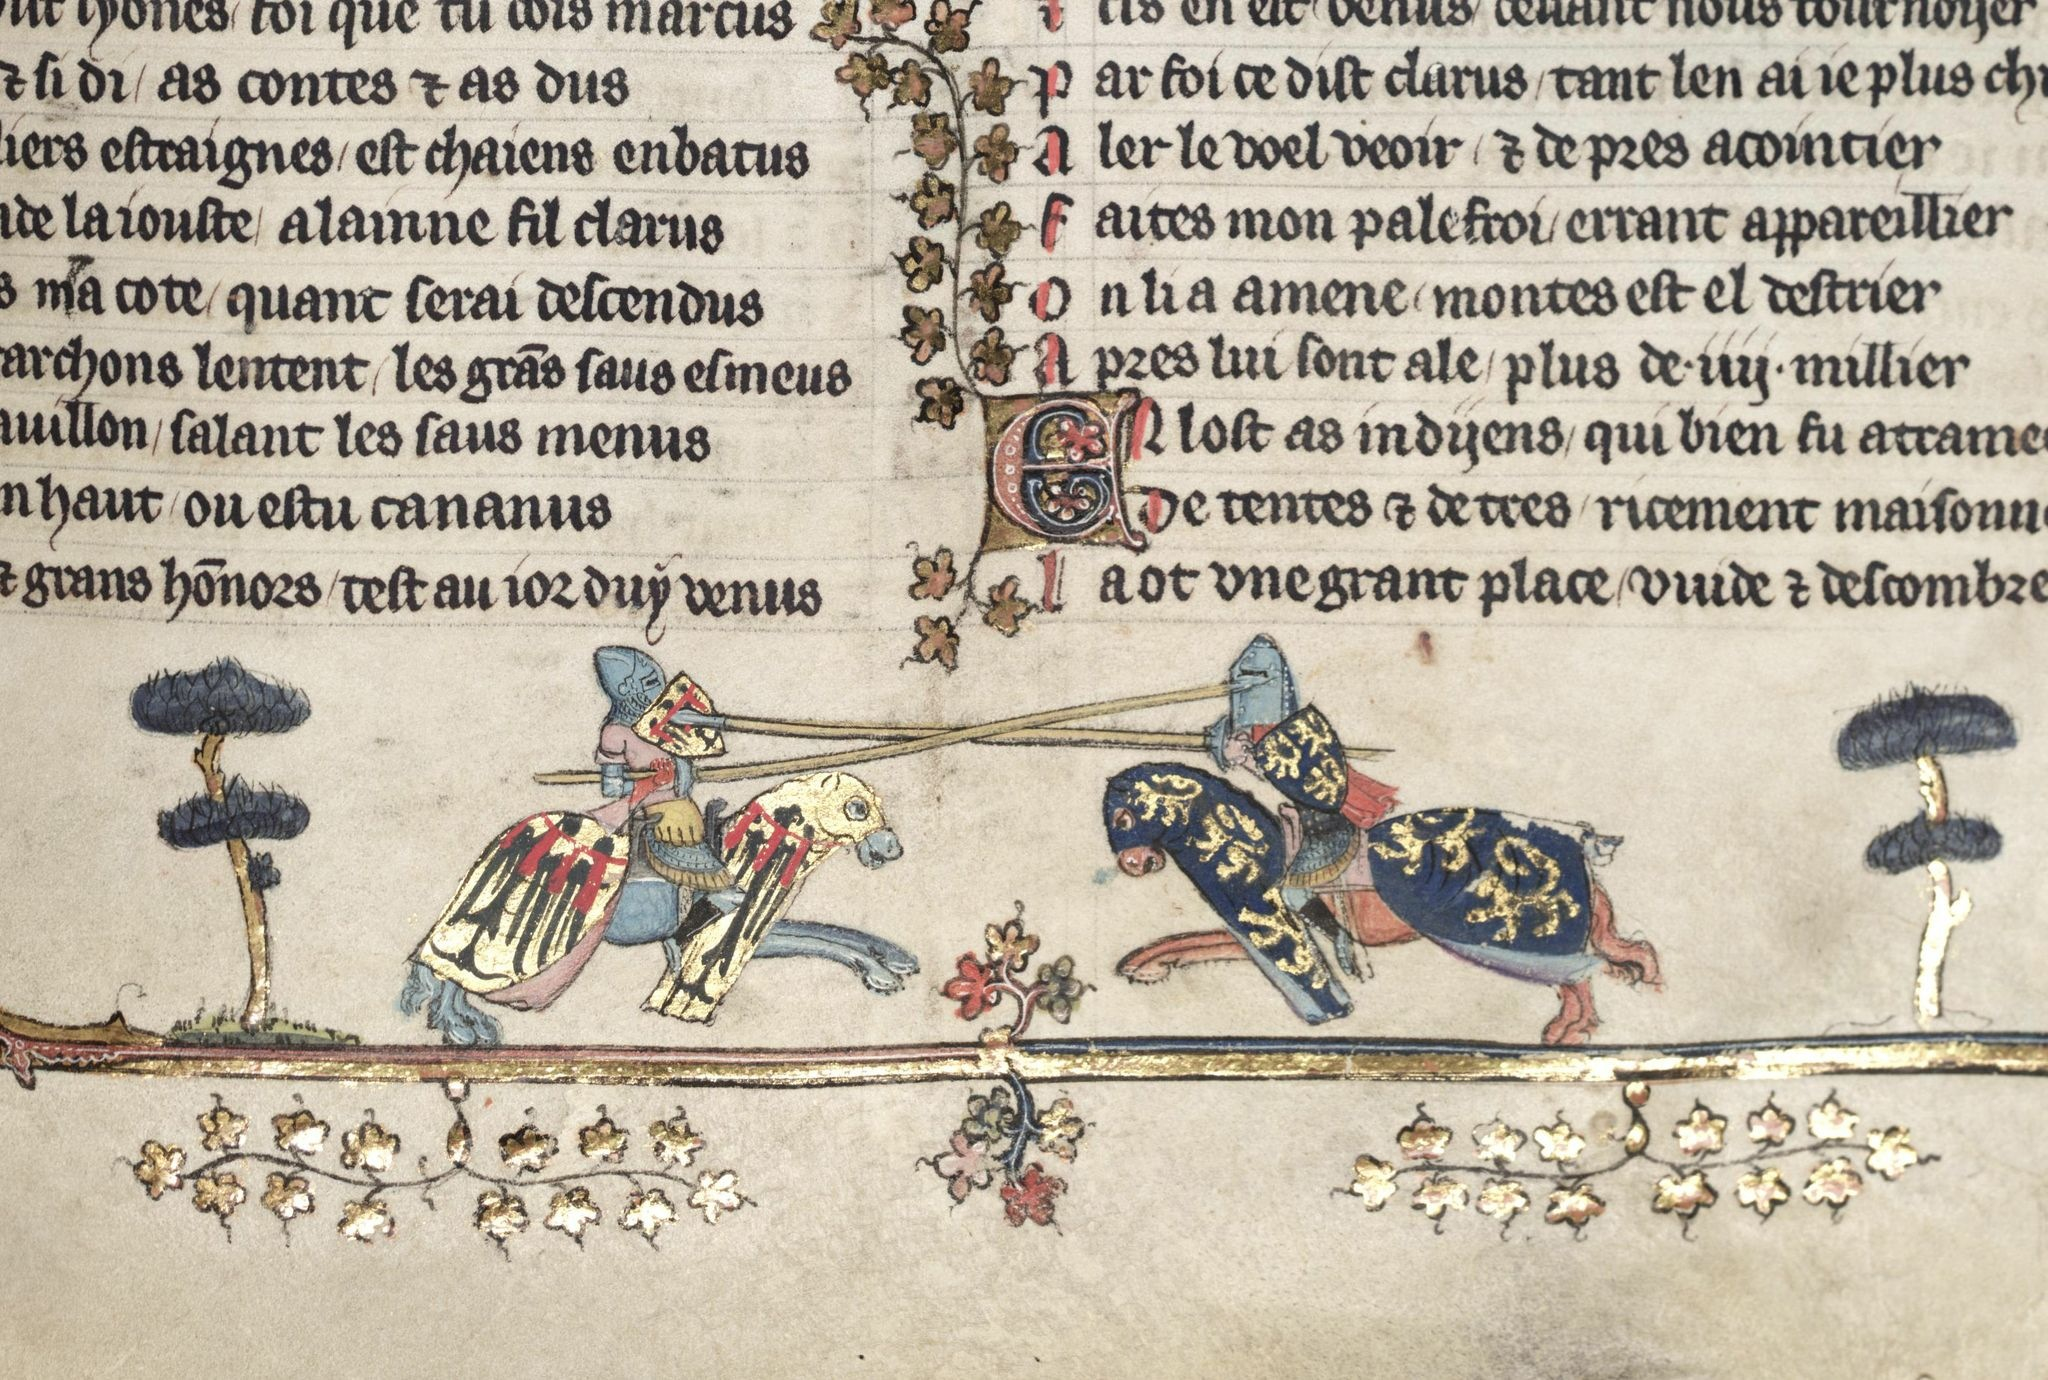 hyones / foi que tu dois marcus
⁊ si di / as contes ⁊ as dus
liers estraignes / est chaiens enbatus
de la iouste / alainne fil clarus
ma cote / quant serai descendus
archons lentent / les grās saus esmeus
auillon / salant les saus menus
n haut / ou es tu cananus
⁊ grans hōnors / test au ior duy venus
en est venus / deuant nous tournoyer
Par foi ce dist clarus / tant len ai ie plus chi
Aler le voel veoir / ⁊ de pres acointier
Faites mon palefroi / errant appareillier
On li a amene / montes est el destrier
Apres lui sont ale / plus de ·iiij· millier
EN lost as indyens / qui bien fu atrame
De tentes ⁊ de tres / ricement maisonn
La ot vne grant place / vuide ⁊ descombre